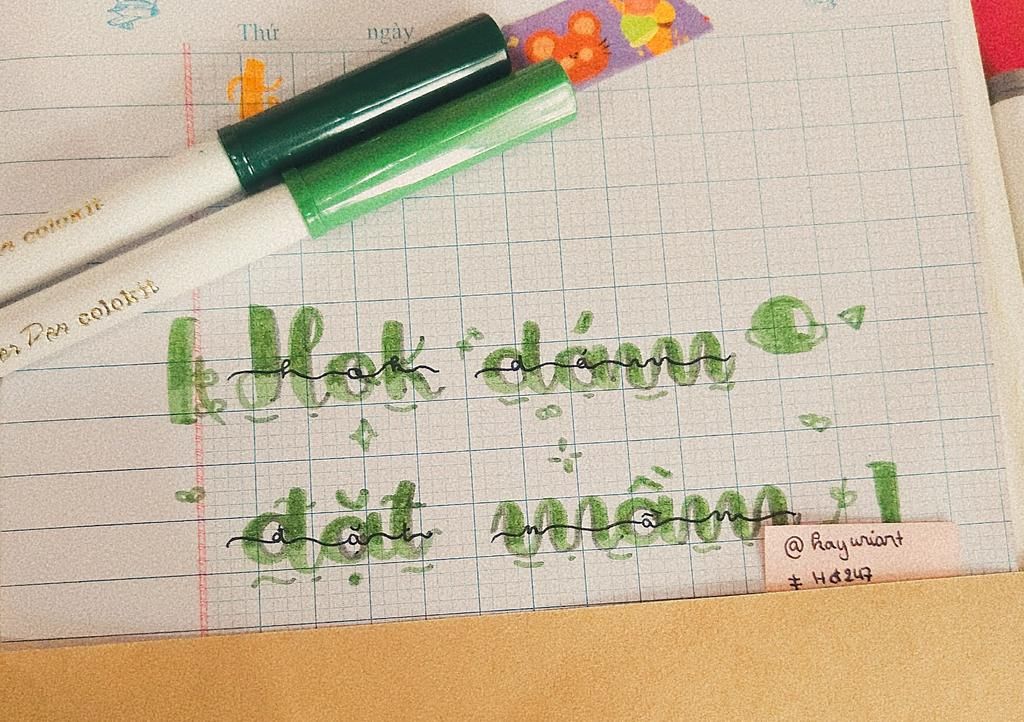 Thứ ngày
colokit
Pen colokit
Hok dám
đặt mầm
@ hayuriart